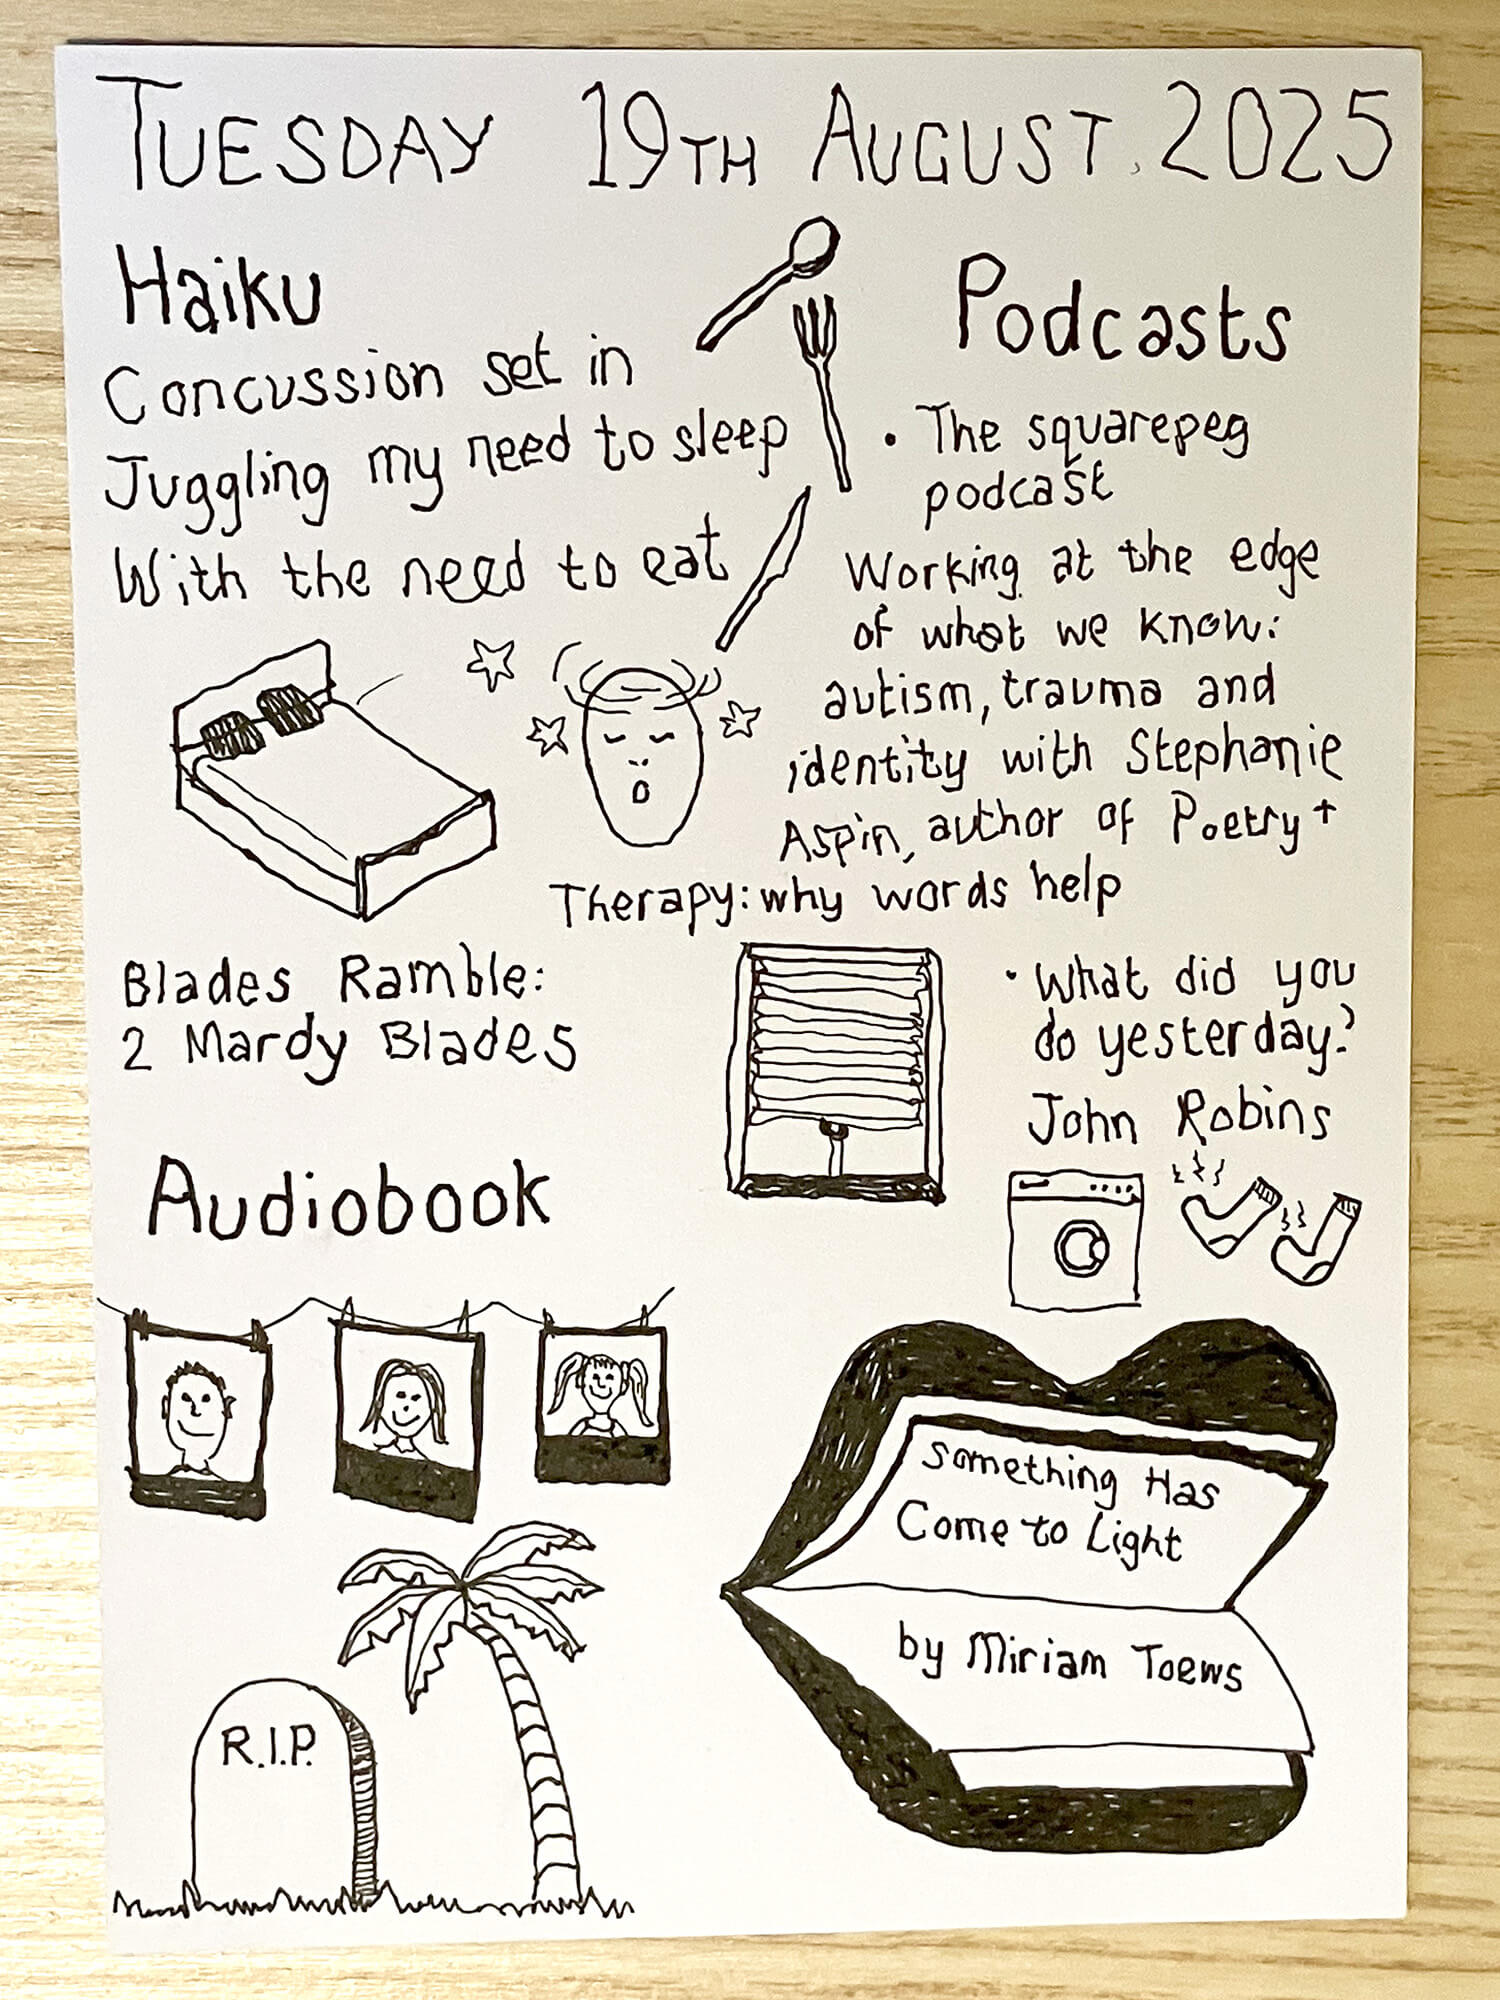 TUESDAY 19TH AUGUST, 2025
Haiku
Concussion set in
Juggling my need to sleep
With the need to eat
Podcasts
• The squarepeg
podcast
Working at the edge
of what we know:
autism, trauma and
identity with Stephanie
Aspin, author of Poetry +
Therapy: why words help
Blades Ramble:
2 Mardy Blades
• What did you
do yesterday?
John Robins
Audiobook
Something Has
Come to Light
by Miriam Toews
R.I.P.